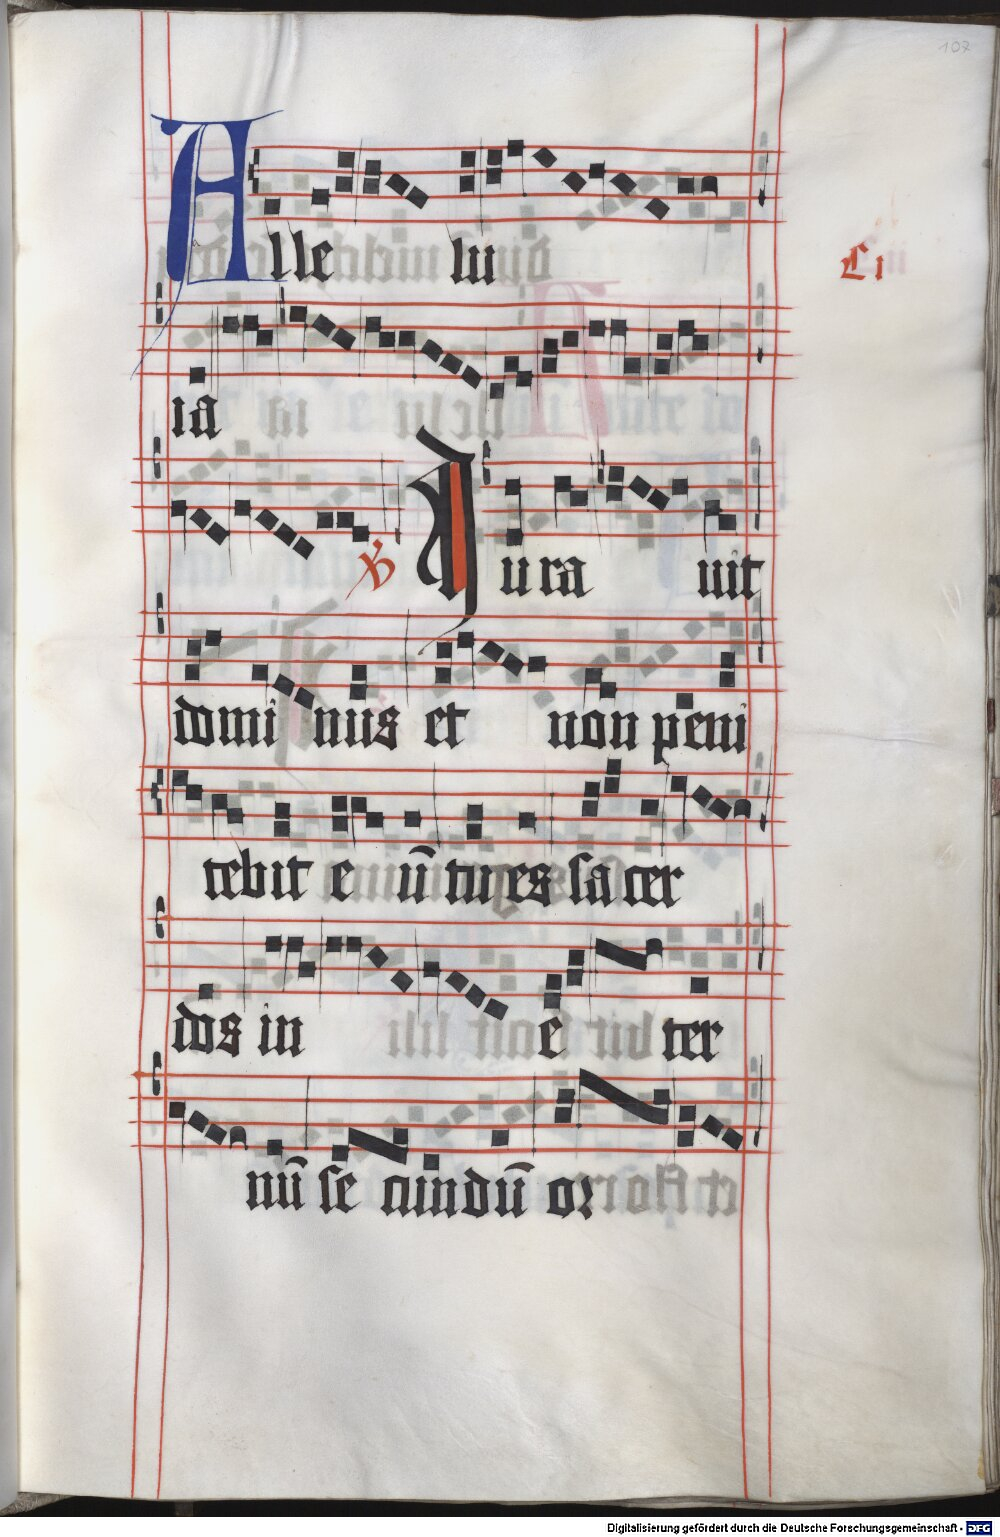 107
Alle lui
Ci
ia
℣ Iura uit
domi nus et non peni
tebit e ū tu es sa cer
dos in e ter
nū se cundū or
Digitalisierung gefördert durch die Deutsche Forschungsgemeinschaft - DFG